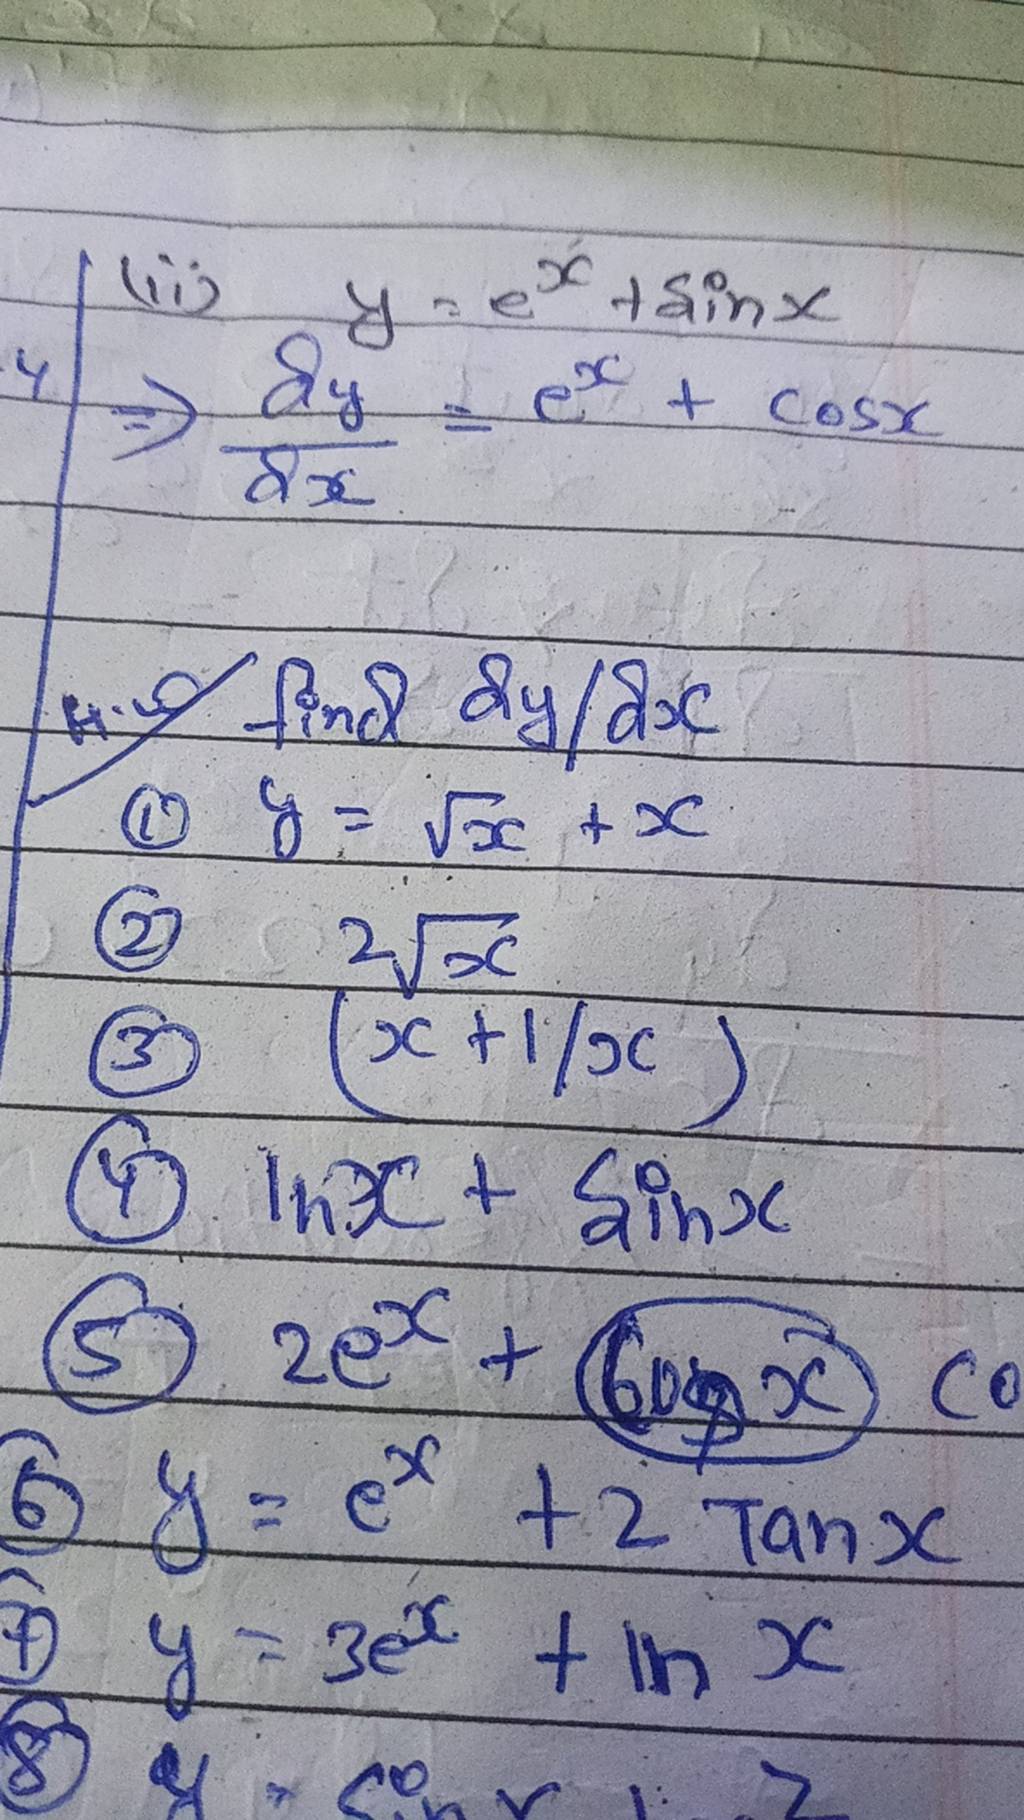 (ii) y = e^x + sinx
4 ⇒ dy/dx = e^x + cosx
H.W find dy/dx
① y = √x + x
② 2√x
③ (x + 1/x)
④ lnx + sinx
⑤ 2e^x + co
⑥ y = e^x + 2 Tanx
⑦ y = 3e^x + ln x
⑧ y = sinx